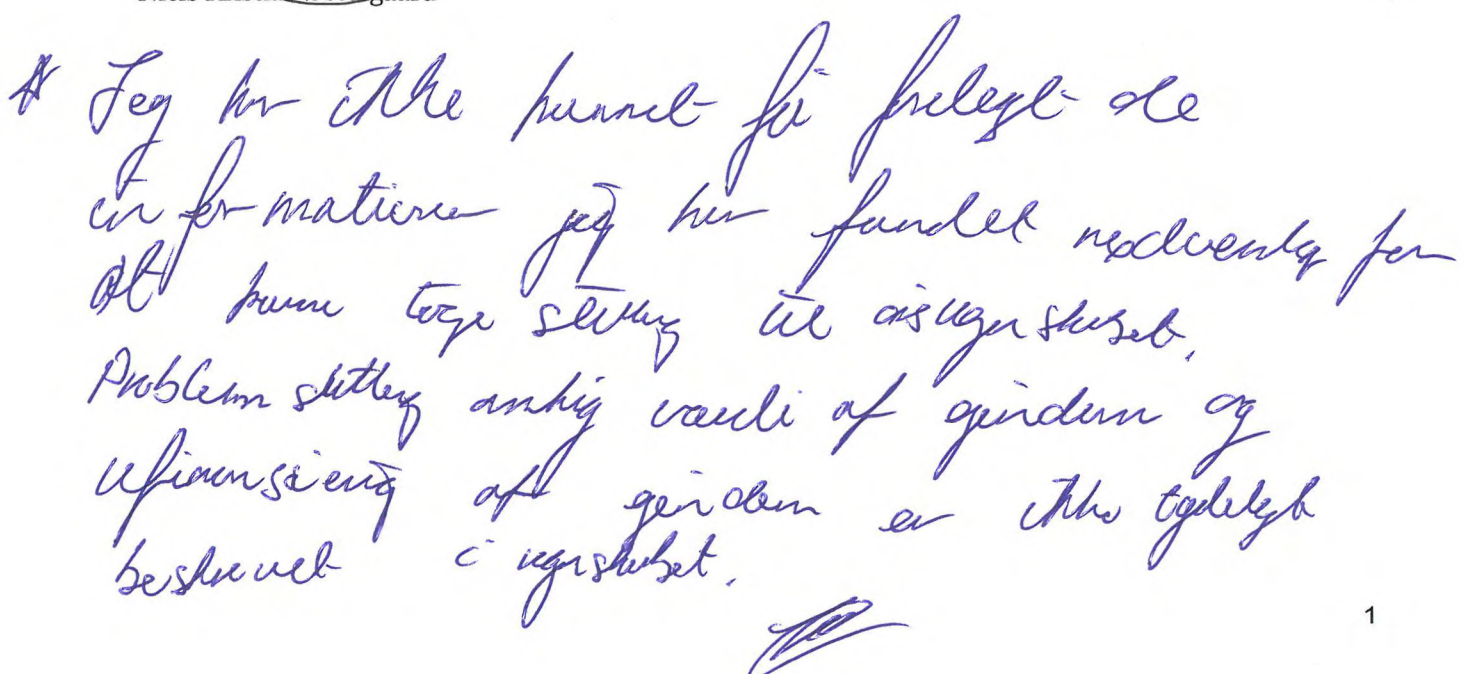 * Jeg har ikke kunnet få forelagt de
informationer jeg har fundet nødvendig for
at kunne tage stilling til årsregnskabet.
Problemstilling omkring værdi af gælden og
refinansiering af gælden er ikke tydeligt
beskrevet i regnskabet.
1